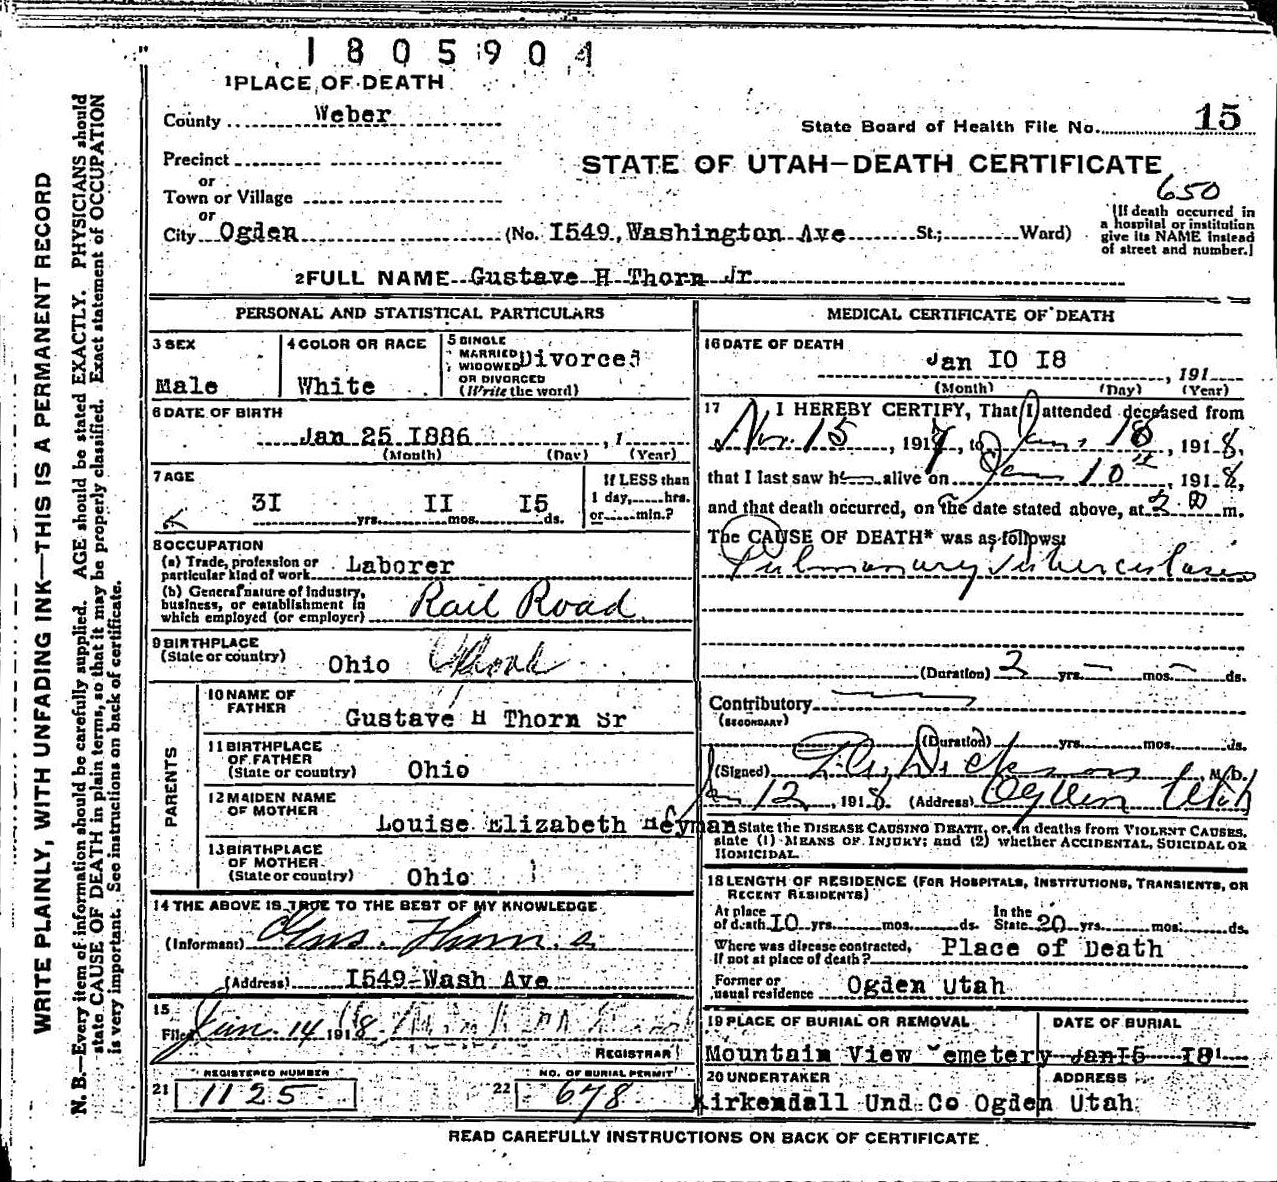 1805904
1 PLACE OF DEATH
County Weber
State Board of Health File No. 15
Precinct
or
Town or Village
or
STATE OF UTAH—DEATH CERTIFICATE
650
City Ogden (No. I549, Washington Ave St.; Ward)
[If death occurred in
a hospital or institution
give its NAME instead
of street and number.]
2 FULL NAME Gustave H Thorn Jr
PERSONAL AND STATISTICAL PARTICULARS
3 SEX
Male
4 COLOR OR RACE
White
5 SINGLE
MARRIED
WIDOWED
OR DIVORCED
(Write the word)
Divorced
6 DATE OF BIRTH
Jan 25 I886, 1
(Month) (Day) (Year)
7 AGE
3I yrs. II mos. I5 ds.
If LESS than
1 day, hrs.
or min.?
8 OCCUPATION
(a) Trade, profession or
particular kind of work Laborer
(b) General nature of Industry,
business, or establishment in
which employed (or employer) Rail Road
9 BIRTHPLACE
(State or country) Ohio
PARENTS
10 NAME OF
FATHER
Gustave H Thorn Sr
11 BIRTHPLACE
OF FATHER
(State or country) Ohio
12 MAIDEN NAME
OF MOTHER
Louise Elizabeth Heyman
13 BIRTHPLACE
OF MOTHER
(State or country) Ohio
14 THE ABOVE IS TRUE TO THE BEST OF MY KNOWLEDGE
(Informant) Gus. Thorn
(Address) I549-Wash Ave
15
Filed Jan. 14 1918
REGISTRAR
21 REGISTERED NUMBER
1125
22 NO. OF BURIAL PERMIT
678
MEDICAL CERTIFICATE OF DEATH
16 DATE OF DEATH
Jan IO I8, 191
(Month) (Day) (Year)
17 I HEREBY CERTIFY, That I attended deceased from
Nov. 15, 1917, to Jan 18, 1918,
that I last saw h alive on Jan 10", 1918,
and that death occurred, on the date stated above, at 2 m.
The CAUSE OF DEATH* was as follows:
Pulmonary Tuberculosis
(Duration) 2 yrs. – mos. – ds.
Contributory
(SECONDARY)
(Duration) yrs. mos. ds.
(Signed) Dickson, M.D.
Jan 12, 1918. (Address) Ogden Utah
State the DISEASE CAUSING DEATH, or, in deaths from VIOLENT CAUSES,
state (1) MEANS OF INJURY; and (2) whether ACCIDENTAL, SUICIDAL OR
HOMICIDAL.
18 LENGTH OF RESIDENCE (FOR HOSPITALS, INSTITUTIONS, TRANSIENTS, OR
RECENT RESIDENTS)
At place
of death IO yrs. mos. ds.
In the
State 20 yrs. mos. ds.
Where was disease contracted,
If not at place of death? Place of Death
Former or
usual residence Ogden Utah
19 PLACE OF BURIAL OR REMOVAL
Mountain View Cemetery
DATE OF BURIAL
JanI5 I8 1
20 UNDERTAKER
Kirkendall Und Co
ADDRESS
Ogden Utah
READ CAREFULLY INSTRUCTIONS ON BACK OF CERTIFICATE
WRITE PLAINLY, WITH UNFADING INK—THIS IS A PERMANENT RECORD
N. B.—Every item of information should be carefully supplied. AGE should be stated EXACTLY. PHYSICIANS should
state CAUSE OF DEATH in plain terms, so that it may be properly classified. Exact statement of OCCUPATION
is very important. See instructions on back of certificate.